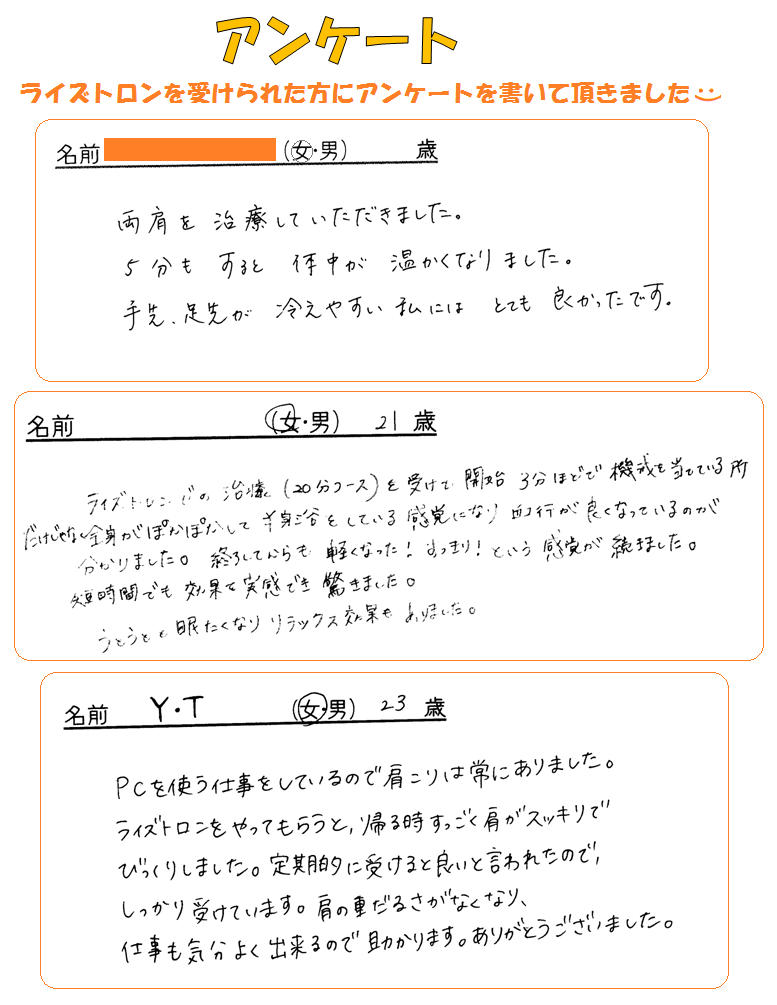 アンケート
ライズトロンを受けられた方にアンケートを書いて頂きました
名前 (女・男) 歳
両肩を治療していただきました。
5分もすると 体中が 温かくなりました。
手先、足先が 冷えやすい私には とても 良かったです。
名前 (女・男) 21 歳
ライズトロンでの治療(20分コース)を受けて開始3分ほどで機械を当てている所
だけじゃなく全身がぽかぽかして半身浴をしている感覚になり血行が良くなっているのが
分かりました。終了してからも軽くなった!すっきり!という感覚が続きました。
短時間でも効果を実感でき驚きました。
うとうとと眠たくなりリラックス効果もありました。
名前 Y・T (女・男) 23 歳
PCを使う仕事をしているので肩こりは常にありました。
ライズトロンをやってもらうと、帰る時すっごく肩がスッキリで
びっくりしました。定期的に受けると良いと言われたので、
しっかり受けています。肩の重だるさがなくなり、
仕事も気分よく出来るので助かります。ありがとうございました。